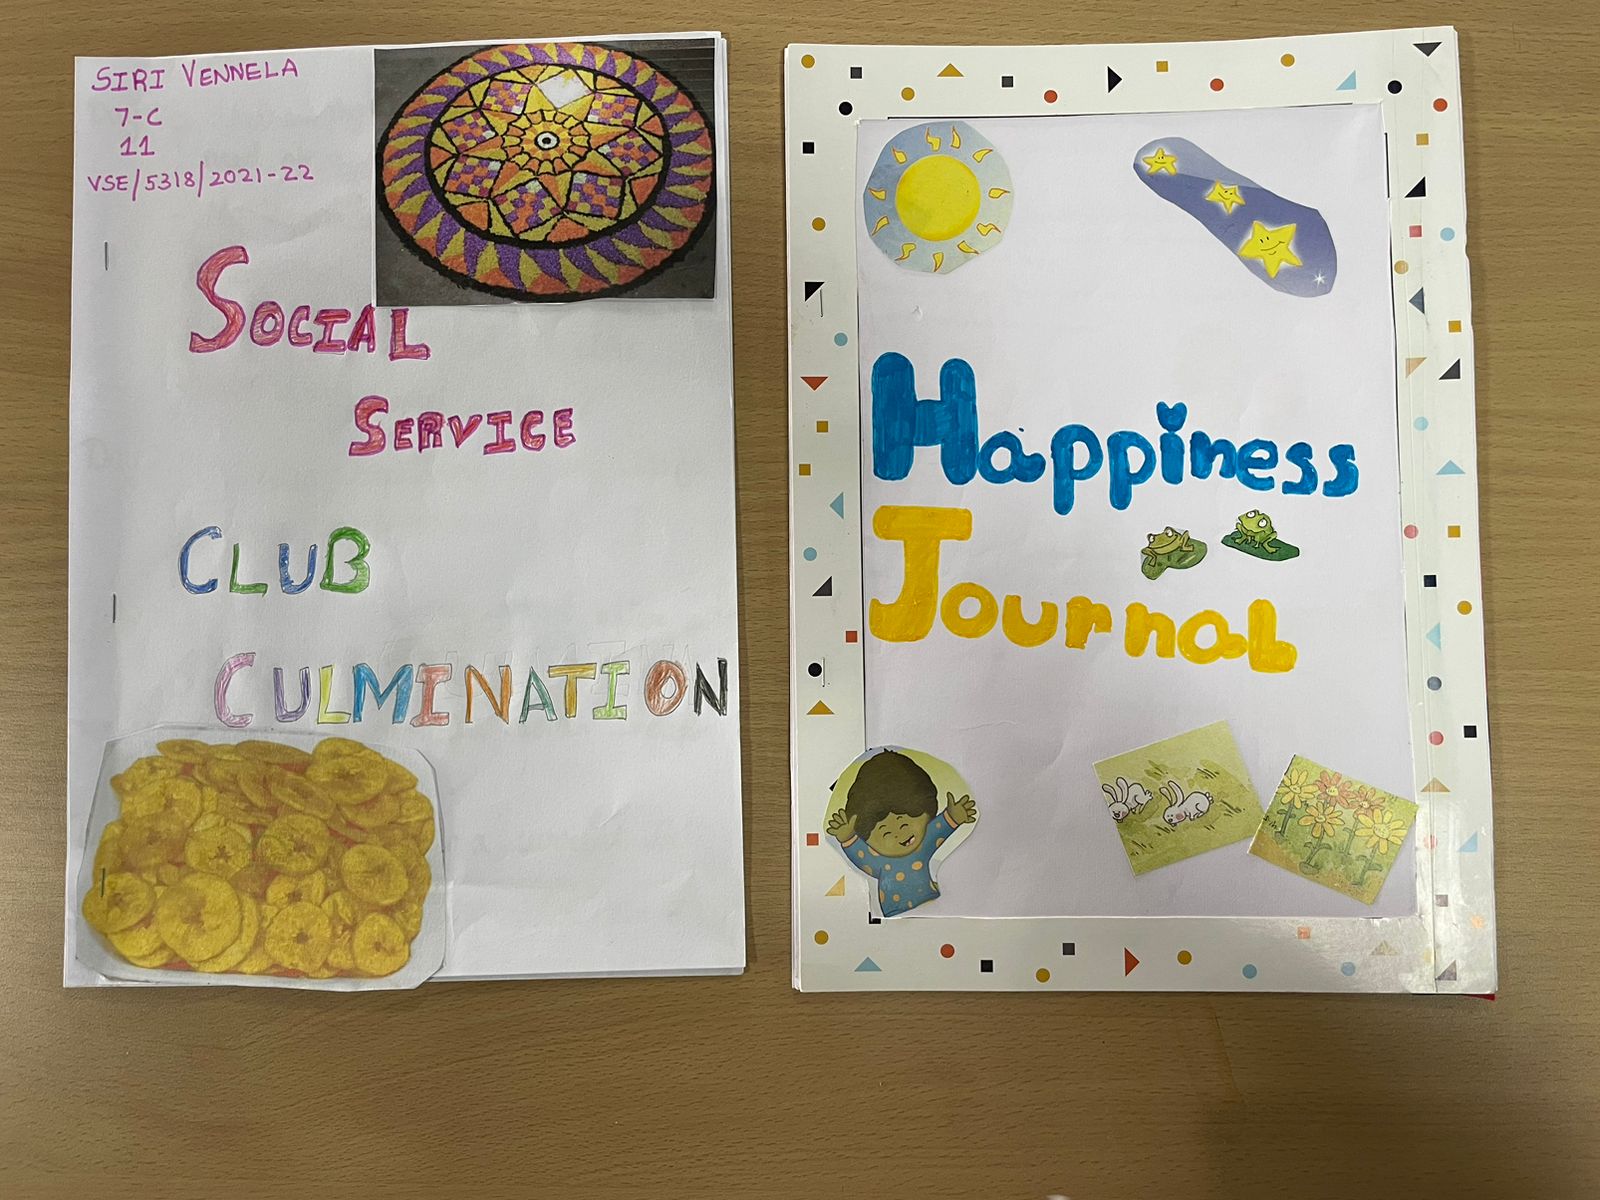 SIRI VENNELA
7-C
11
VSE/5318/2021-22
SOCIAL
SERVICE
CLUB
CULMINATION
Happiness
Journal